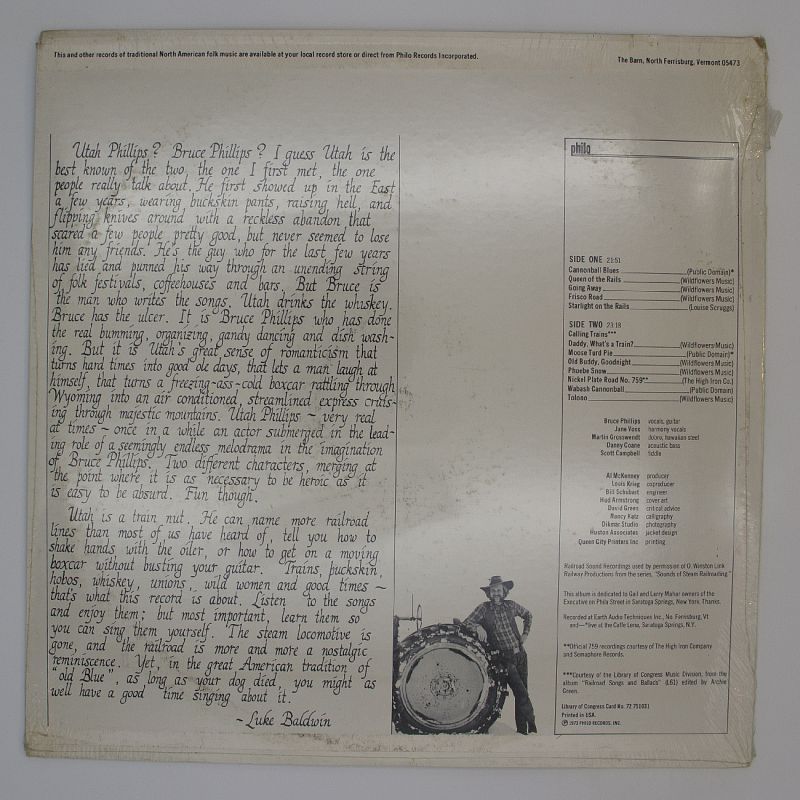 This and other records of traditional North American folk music are available at your local record store or direct from Philo Records Incorporated.
The Barn, North Ferrisburg, Vermont 05473
Utah Phillips? Bruce Phillips? I guess Utah is the
best known of the two, the one I first met, the one
people really talk about. He first showed up in the East
a few years, wearing buckskin pants, raising hell, and
flipping knives around with a reckless abandon that
scared a few people pretty good, but never seemed to lose
him any friends. He's the guy who for the last few years
has lied and punned his way through an unending string
of folk festivals, coffeehouses and bars. But Bruce is
the man who writes the songs. Utah drinks the whiskey.
Bruce has the ulcer. It is Bruce Phillips who has done
the real bumming, organizing, gandy dancing and dish wash-
ing. But it is Utah's great sense of romanticism that
turns hard times into good ole days, that lets a man laugh at
himself, that turns a freezing-ass-cold boxcar rattling through
Wyoming into an air conditioned, streamlined express cruis-
ing through majestic mountains. Utah Phillips ~ very real
at times ~ once in a while an actor submerged in the lead-
ing role of a seemingly endless melodrama in the imagination
of Bruce Phillips. Two different characters, merging at
the point where it is as necessary to be heroic as it
is easy to be absurd. Fun though.
Utah is a train nut. He can name more railroad
lines than most of us have heard of, tell you how to
shake hands with the oiler, or how to get on a moving
boxcar without busting your guitar. Trains, buckskin,
hobos, whiskey, unions, wild women and good times ~
that's what this record is about. Listen to the songs
and enjoy them; but most important, learn them so
you can sing them yourself. The steam locomotive is
gone, and the railroad is more and more a nostalgic
reminiscence. Yet, in the great American tradition of
"old Blue", as long as your dog died, you might as
well have a good time singing about it.
~ Luke Baldwin
philo
SIDE ONE 21:51
Cannonball Blues (Public Domain)*
Queen of the Rails (Wildflowers Music)
Going Away (Wildflowers Music)
Frisco Road (Wildflowers Music)
Starlight on the Rails (Louise Scruggs)
SIDE TWO 23:18
Calling Trains***
Daddy, What's a Train? (Wildflowers Music)
Moose Turd Pie (Public Domain)*
Old Buddy, Goodnight (Wildflowers Music)
Phoebe Snow (Wildflowers Music)
Nickel Plate Road No. 759** (The High Iron Co.)
Wabash Cannonball (Public Domain)
Tolono (Wildflowers Music)
Bruce Phillips vocals, guitar
Jane Voss harmony vocals
Martin Grosswendt dobro, hawaiian steel
Danny Coane acoustic bass
Scott Campbell fiddle
Al McKenney producer
Louis Krieg coproducer
Bill Schubart engineer
Hud Armstrong cover art
David Green critical advice
Nancy Katz calligraphy
Dikmar Studio photography
Huston Associates jacket design
Queen City Printers Inc printing
Railroad Sound Recordings used by permission of O. Winston Link
Railway Productions from the series, "Sounds of Steam Railroading."
This album is dedicated to Gail and Lerry Mahar owners of the
Executive on Phila Street in Saratoga Springs, New York. Thanks.
Recorded at Earth Audio Techniques Inc., No. Ferrisburg, Vt
and—*live at the Caffe Lena, Saratoga Springs, N.Y.
**Official 759 recordings courtesy of The High Iron Company
and Semaphore Records.
***Courtesy of the Library of Congress Music Division, from the
album "Railroad Songs and Ballads" (L61) edited by Archie
Green.
Library of Congress Card No: 72 751031
Printed in USA.
Ⓟ 1973 PHILO RECORDS, INC.